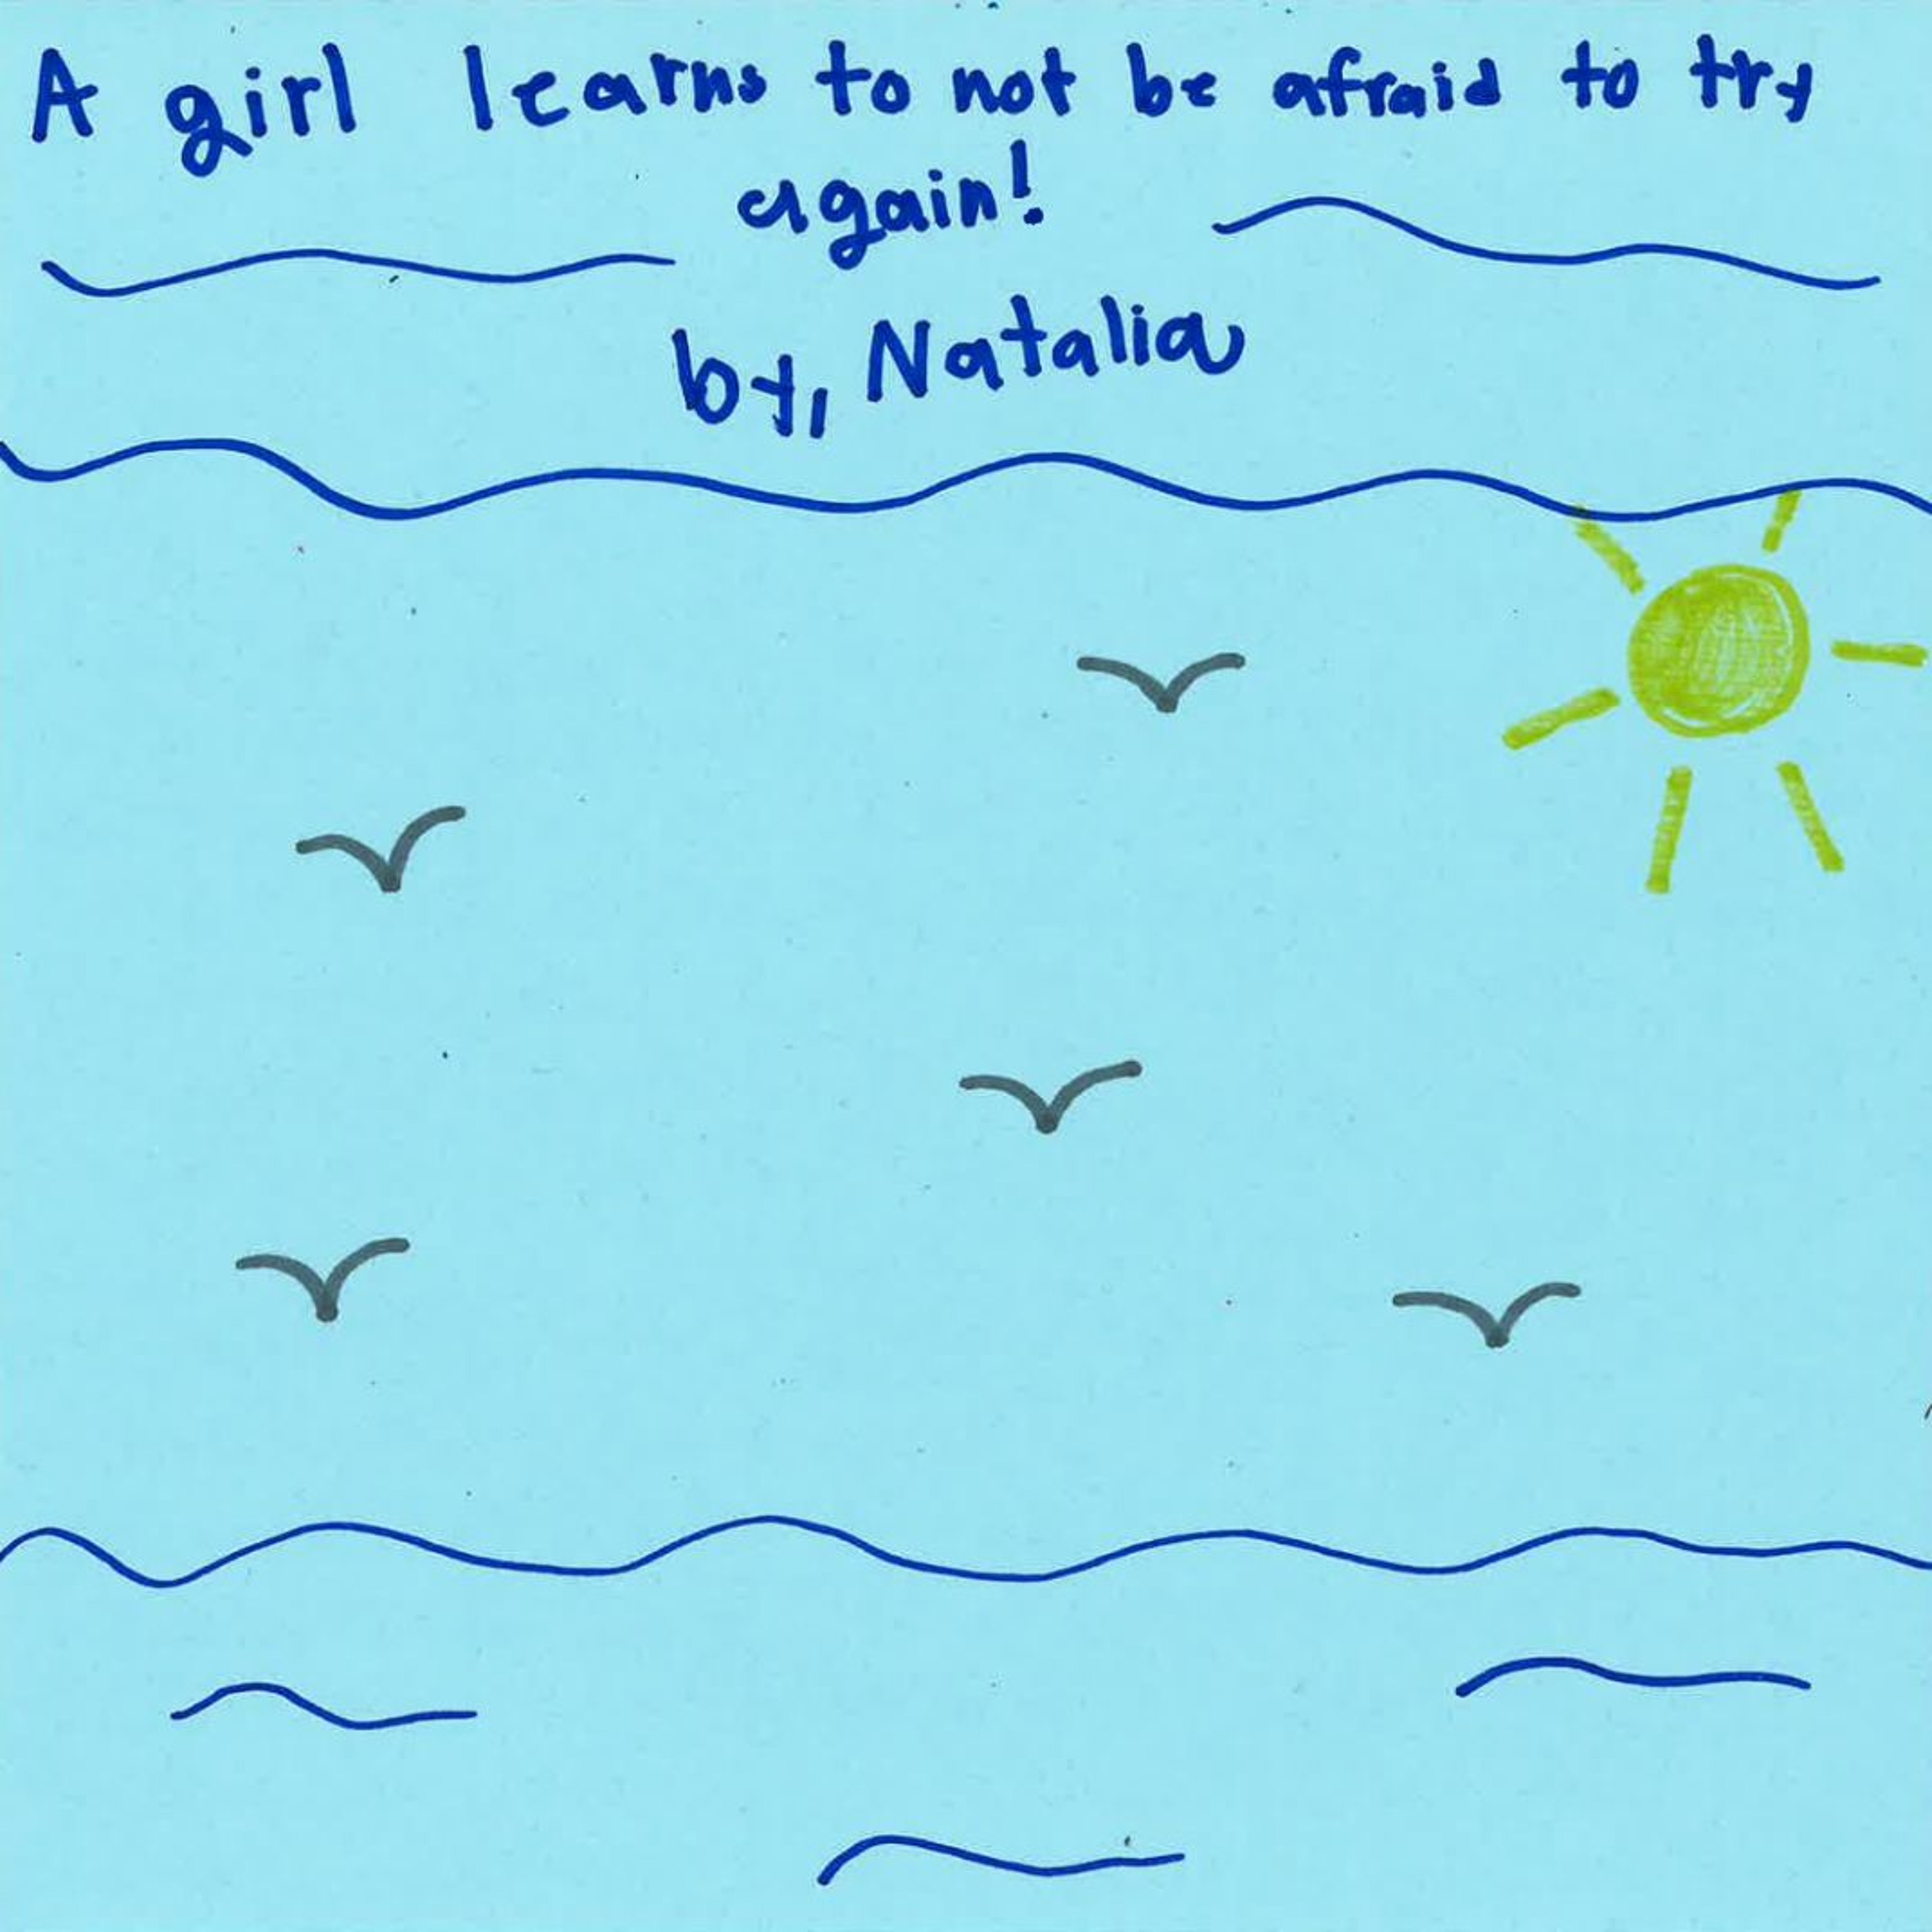 A girl learns to not be afraid to try
again!
by, Natalia